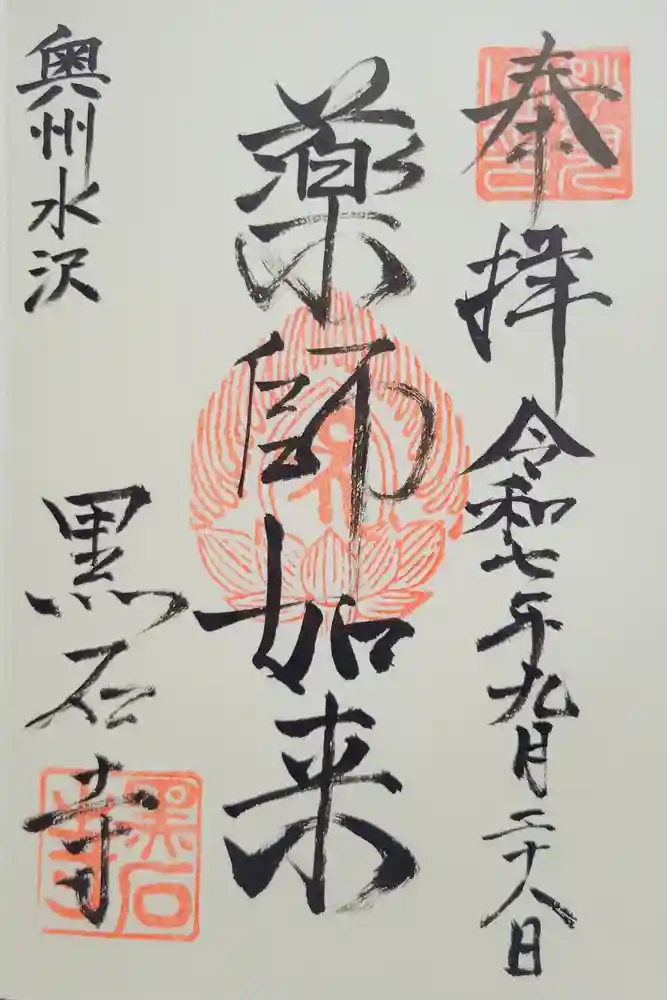 奉拝 令和七年九月二十八日
薬師如来
奥州水沢
黒石寺
黒石寺